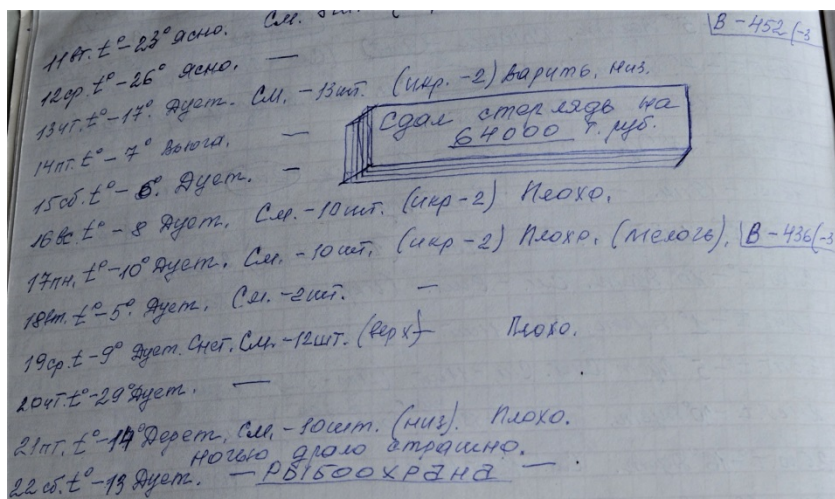 11вт. t°-23° Ясно. См.
В-452(-3
12ср. t°-26° Ясно. —
13чт. t°-17° Дует. См. -13шт. (икр.-2) Варить, низ.
Сдал стерлядь на
64000 т. руб.
14пт. t°-7° Вьюга. —
15сб. t°-6° Дует. —
16вс. t°-8 Дует. См. -10шт. (икр-2) Плохо.
17пн. t°-10° Дует. См. -10шт. (икр-2) Плохо. (мелочь). В-436(-3
18вт. t°-5° Дует. См. -2шт. —
19ср. t-9° Дует. Снег. См. -12шт. (верх)- Плохо.
20чт. t°-29° Дует. —
21пт. t°-14° Дерет. См. -10шт. (низ). Плохо.
ночью драло страшно.
22сб. t°-13 Дует. — РЫБООХРАНА —